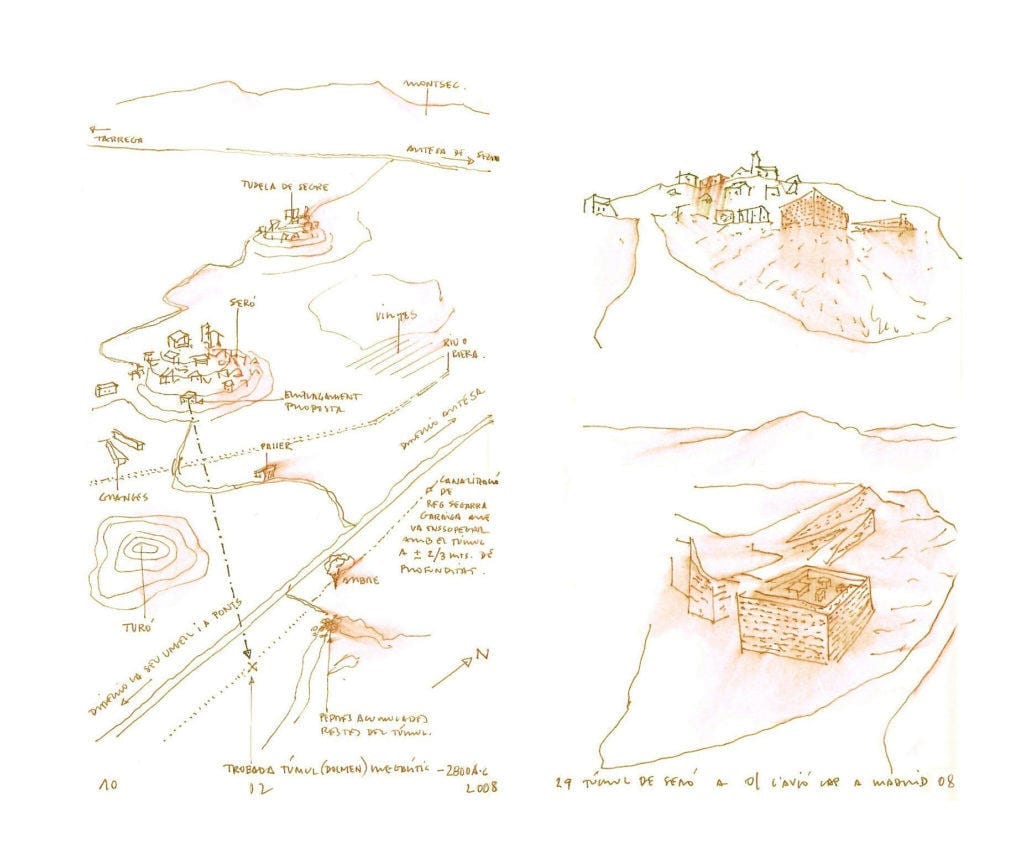 MONTSEC.
TÀRREGA
ARTESA DE SEGRE
TUDELA DE SEGRE
SERÓ
VINYES
RIU O
RIERA.
EMPLAÇAMENT
PROPOSTA
DIRECCIÓ ARTESA
PALLER
GRANGES
CANALITZACIÓ
DE
REG SEGARRA
GARRIGA QUE
VA ENSOPEGAR
AMB EL TÚMUL
A ± 2/3 MTS. DE
PROFUNDITAT.
ARBRE
TURÓ
DIRECCIÓ LA SEU URGELL I A PONTS
N
PEDRES ACUMULADES
RESTES DEL TÚMUL.
TROBADA TÚMUL (DOLMEN) MEGALÍTIC -2800 A.C
10 02 2008
29 TÚMUL DE SERÓ A L'AVIÓ CAP A MADRID 08